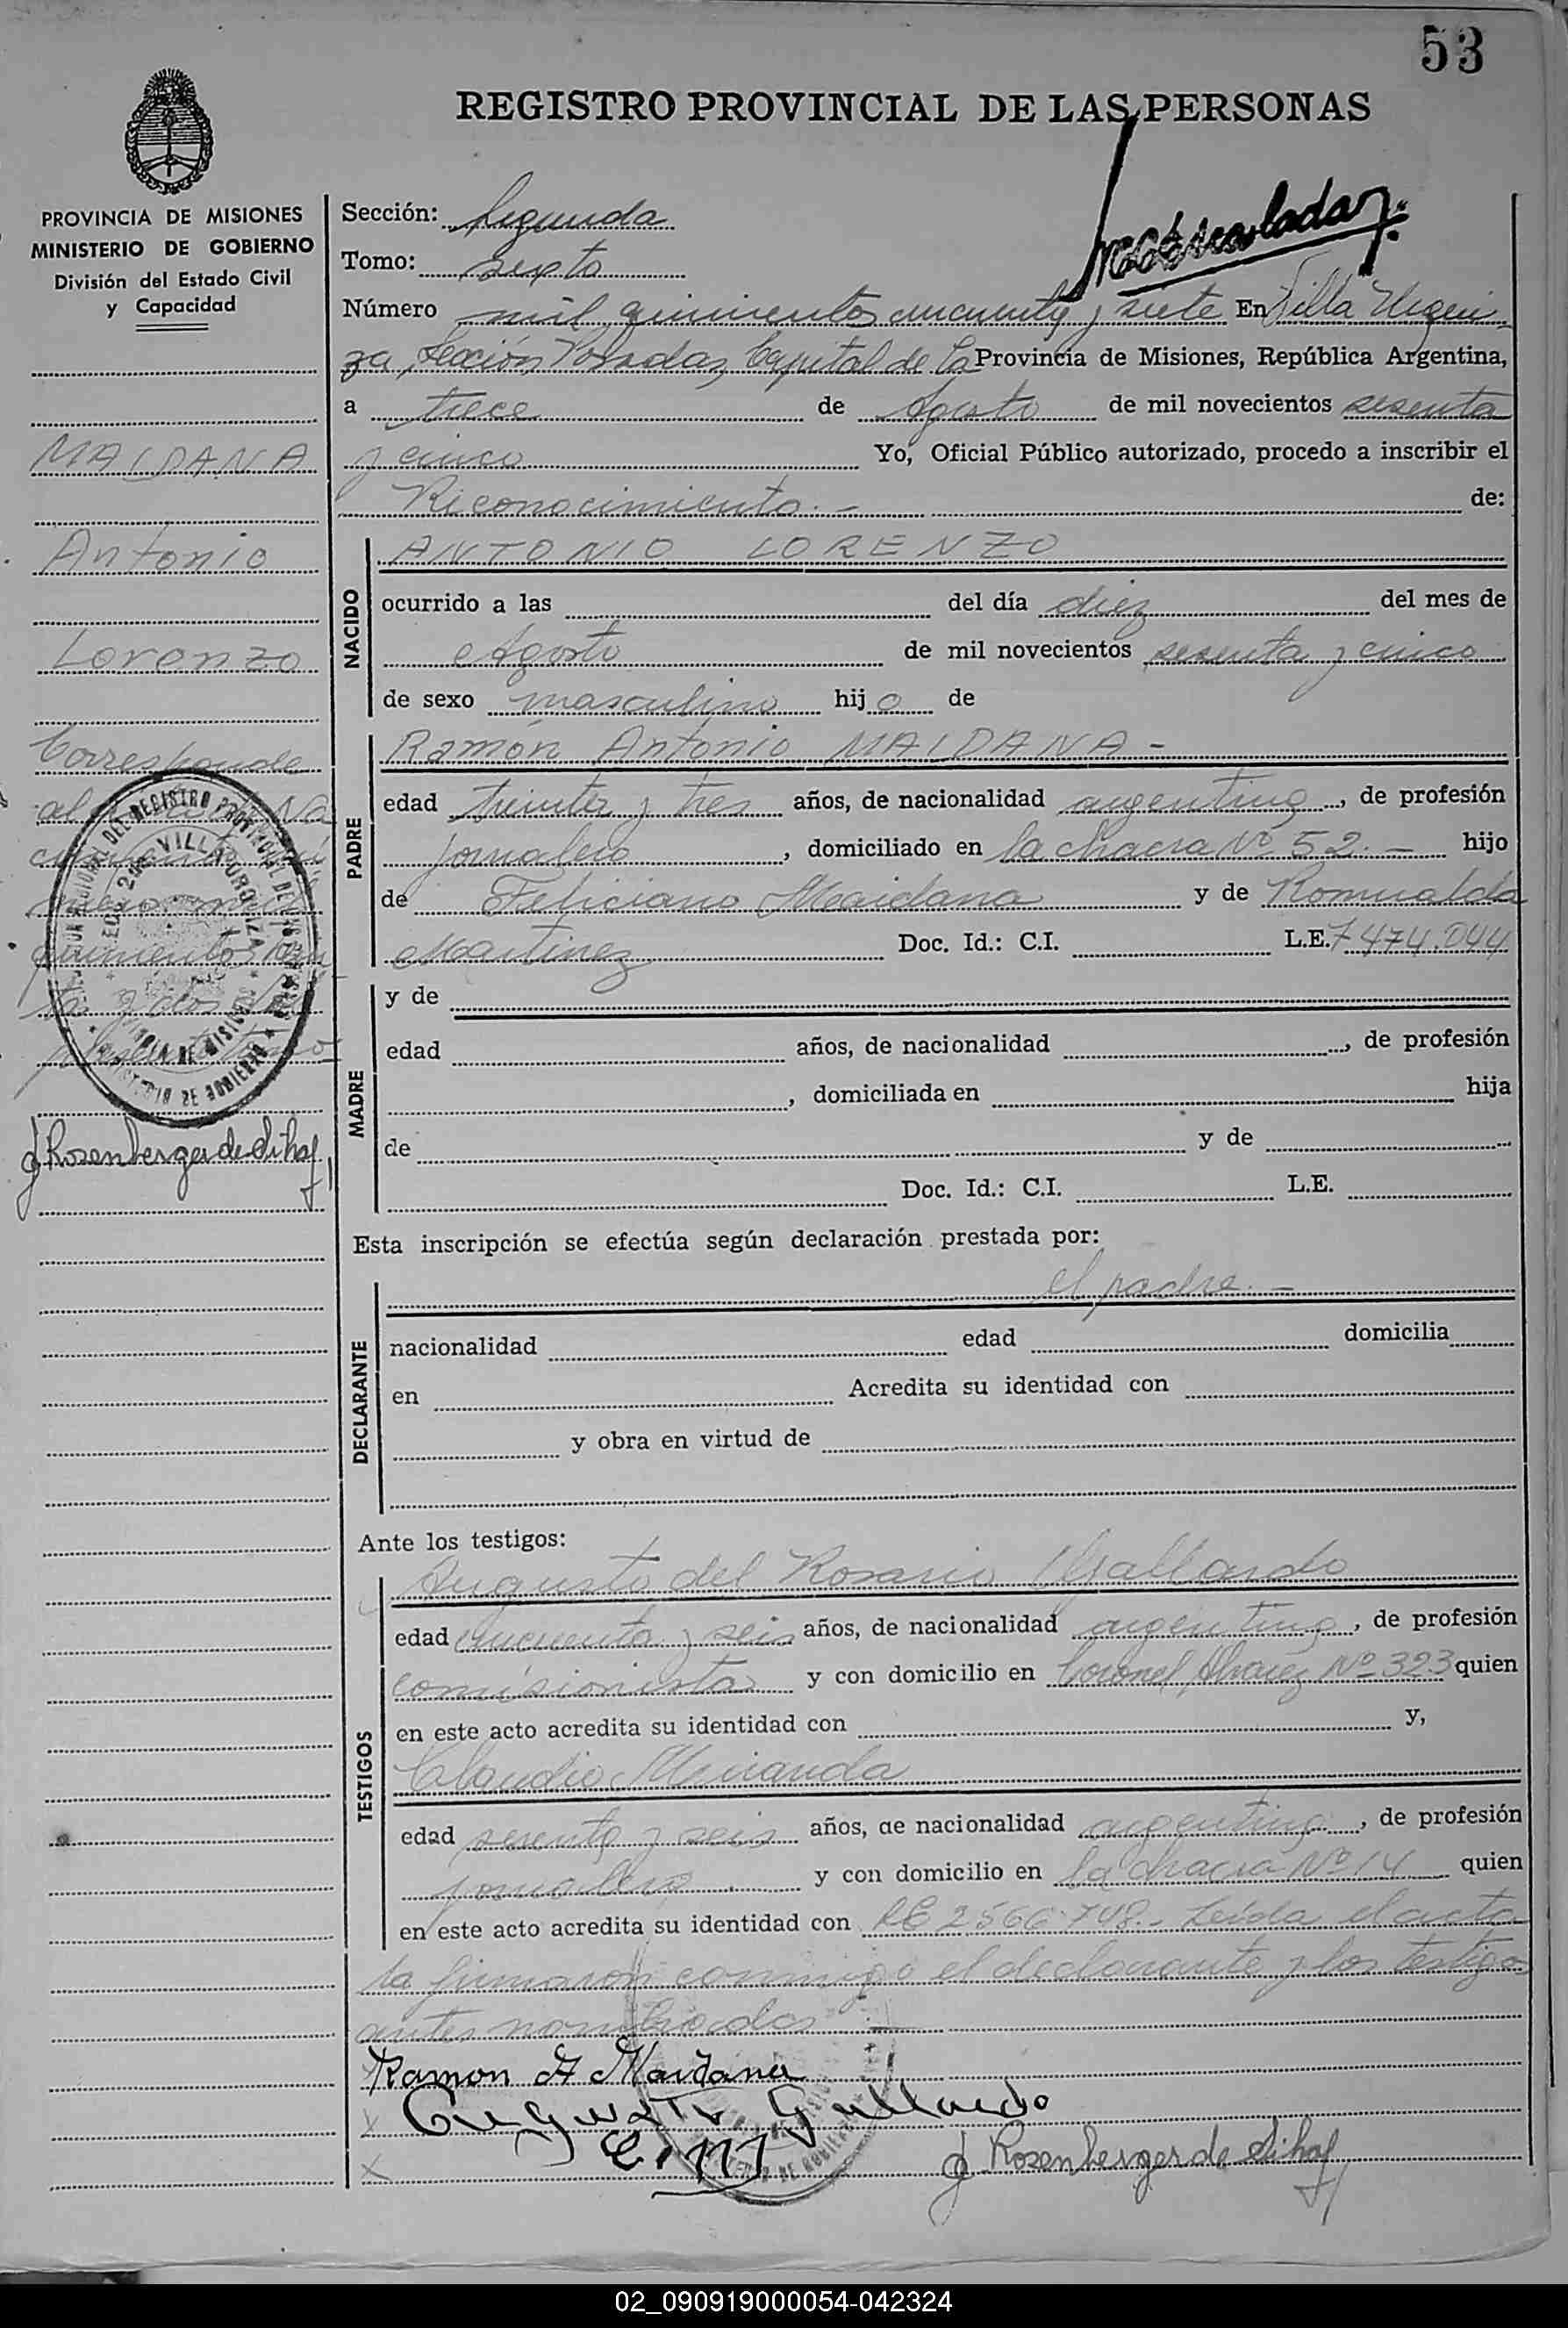 53
REGISTRO PROVINCIAL DE LAS PERSONAS
PROVINCIA DE MISIONES
MINISTERIO DE GOBIERNO
División del Estado Civil
y Capacidad
MAIDANA
Antonio
Lorenzo
Corresponde
al
quinientos
y dos
J Rosenberger de
Sección: Segunda
Tomo: sexto
Número mil quinientos cincuenta y siete En Villa Urqui
za, Sección Posadas, Capital de la Provincia de Misiones, República Argentina,
a trece de Agosto de mil novecientos sesenta
y cinco Yo, Oficial Público autorizado, procedo a inscribir el
Riconocimiento.- de:
NACIDO
ANTONIO LORENZO
ocurrido a las del día diez del mes de
Agosto de mil novecientos sesenta y cinco
de sexo masculino hijo de
PADRE
Ramón Antonio MAIDANA-
edad treinta y tres años, de nacionalidad argentino, de profesión
jornalero, domiciliado en la chacra Nº 52.- hijo
de Feliciano Maidana y de Romualda
Martinez Doc. Id.: C.I. L.E. 7474.044
MADRE
y de
edad años, de nacionalidad , de profesión
, domiciliada en hija
de y de
Doc. Id.: C.I. L.E.
Esta inscripción se efectúa según declaración prestada por:
el padre.-
DECLARANTE
nacionalidad edad domicilia
en Acredita su identidad con
y obra en virtud de
Ante los testigos:
TESTIGOS
Augusto del Rosario Gallardo
edad cincuenta y seis años, de nacionalidad argentino, de profesión
comisionista y con domicilio en Coronel Alvarez Nº 323 quien
en este acto acredita su identidad con y,
Claudio Miranda
edad sesenta y seis años, de nacionalidad argentino, de profesión
jornalero y con domicilio en la chacra Nº 14 quien
en este acto acredita su identidad con LE 2566.748.- Leida el acta
la firmaron conmigo el declarante y los testigos
antes nombrados
Ramon A Maidana
Augusto Gallardo
C. M
J Rosenberger de
02_090919000054-042324